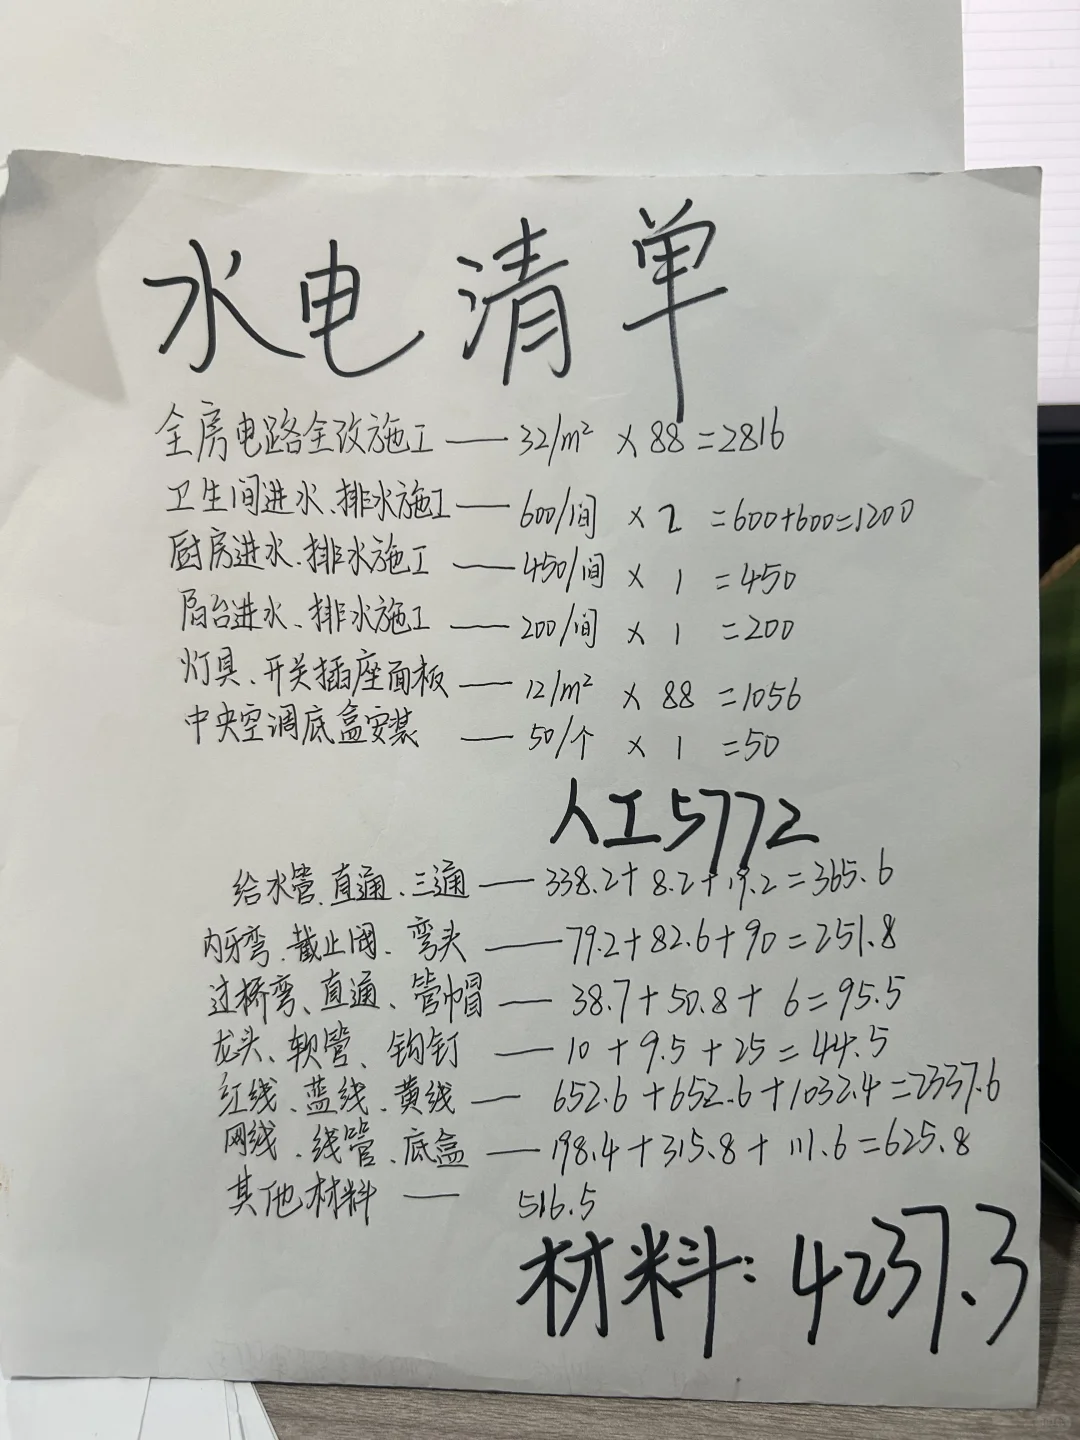 水电清单
全房电路全改施工 —— 32/m² × 88 = 2816
卫生间进水、排水施工 —— 600/间 × 2 = 600+600=1200
厨房进水、排水施工 —— 450/间 × 1 = 450
阳台进水、排水施工 —— 200/间 × 1 = 200
灯具、开关插座面板 —— 12/m² × 88 = 1056
中央空调底盒安装 —— 50/个 × 1 = 50
人工5772
给水管、直通、三通 —— 338.2+8.2+19.2=365.6
内牙弯、截止阀、弯头 —— 79.2+82.6+90=251.8
过桥弯、直通、管帽 —— 38.7+50.8+6=95.5
龙头、软管、钩钉 —— 10+9.5+25=44.5
红线、蓝线、黄线 —— 652.6+652.6+1032.4=2337.6
网线、线管、底盒 —— 198.4+315.8+111.6=625.8
其他材料 —— 516.5
材料:4237.3